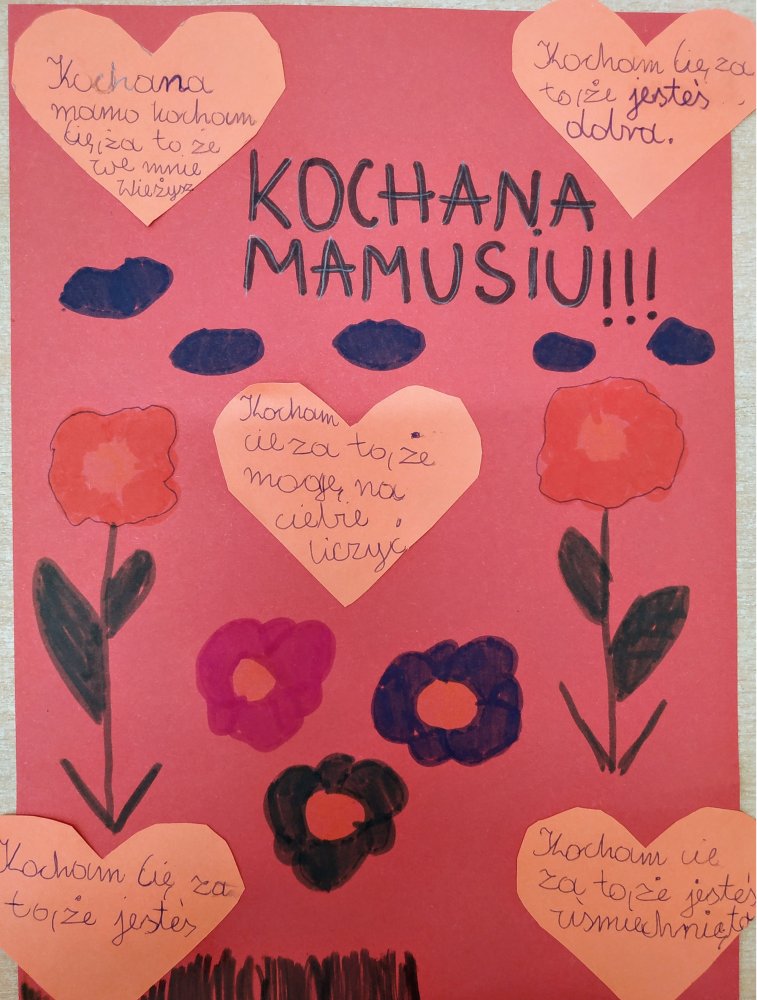 Kochana
mamo kocham
Cię, za to że
we mnie
wieżysz
Kocham Cię, za
to, że jesteś
dobra.
KOCHANA
MAMUSIU!!!
Kocham
cie za to, że
mogę na
ciebie
liczyć
Kocham Cię za
to, że jesteś
Kocham cie
za to, że jesteś
uśmiechnięta